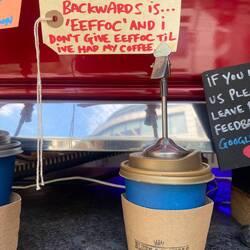 BACKWARDS IS...
'EEFFOC' AND I
DON'T GIVE EEFFOC TIL
IVE HAD MY COFFEE
IF YOU
US PLE
LEAVE
FEEDB
GOOGL